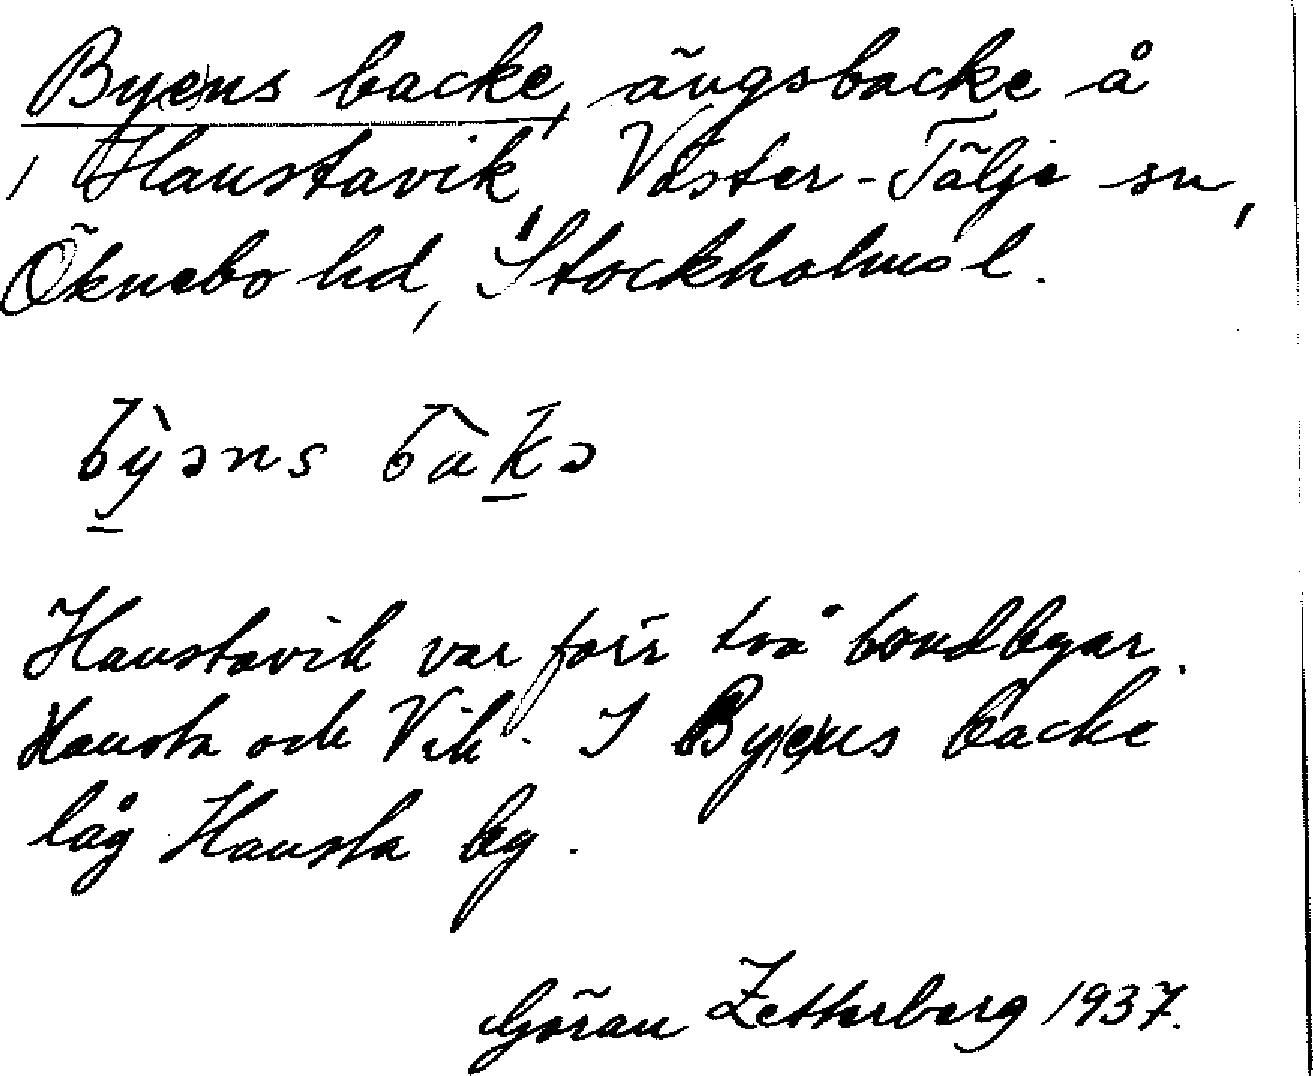 By(e)ns backe, ängsbacke å
1 Haustavik, Väster-Tälje sn,
Öknebo hd, Stockholms l.
bỳəns bàkə
Haustavik var förr två bondbyar
Hausta och Vik. I By(e)ns backe
låg Hausta by.
Göran Zetterberg 1937.